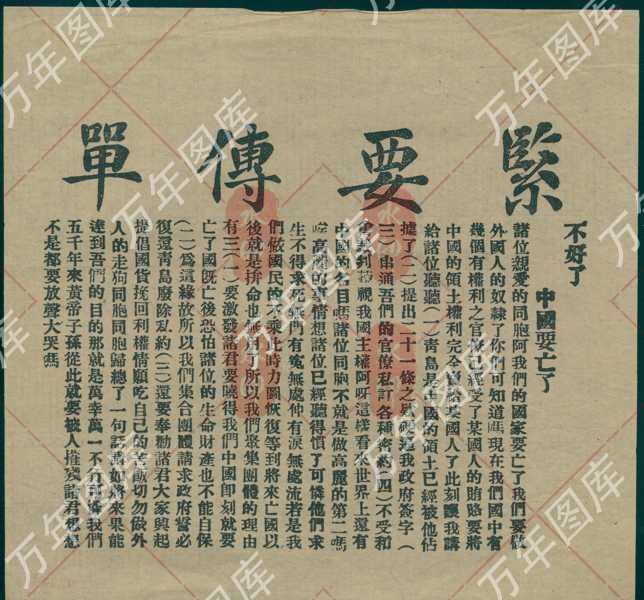 緊要傳單
不好了
中國要亡了
諸位親愛的同胞阿我們的國家要亡了我們要做
外國人的奴隸了你們可知道嗎現在我們國中有
幾個有權利之官僚已經受了某國人的賄賂要將
中國的領土權利完全賣給某國人了此刻讓我講
給諸位聽聽(一)青島是中國的領土已經被他佔
據了(二)提出二十一條之 硬逼我政府簽字(
三)串通吾們的官僚私訂各種密約(四)不受和
視我國主權阿呀這樣看來世界上還有
中國的名目嗎諸位同胞不就是做高麗的第二嗎
高麗的事情想諸位已經聽得慣了可憐他們求
生不得求死無門有寃無處伸有淚無處流若是我
們做國民的不乘此時力圖恢復等到將來亡國以
後就是拚命也無用了所以我們聚集團體的理由
有三(一)要激發諸君要曉得我們中國即刻就要
亡了國既亡後恐怕諸位的生命財產也不能自保
(二)為這緣故所以我們集合團體請求政府誓必
復還青島廢除私約(三)還要奉勸諸君大家興起
提倡國貨挽回利權情願吃自己的苦飯切勿做外
人的走狗同胞同胞歸總了一句話萬如將來果能
達到吾們的目的那就是萬幸萬一不 可憐我們
五千年來黃帝子孫從此就要被人摧殘諸君想想
不是都要放聲大哭嗎
万年图库
万年图库
万年图库
万年图库
万年图库
万年图库
万年图库
万年图库